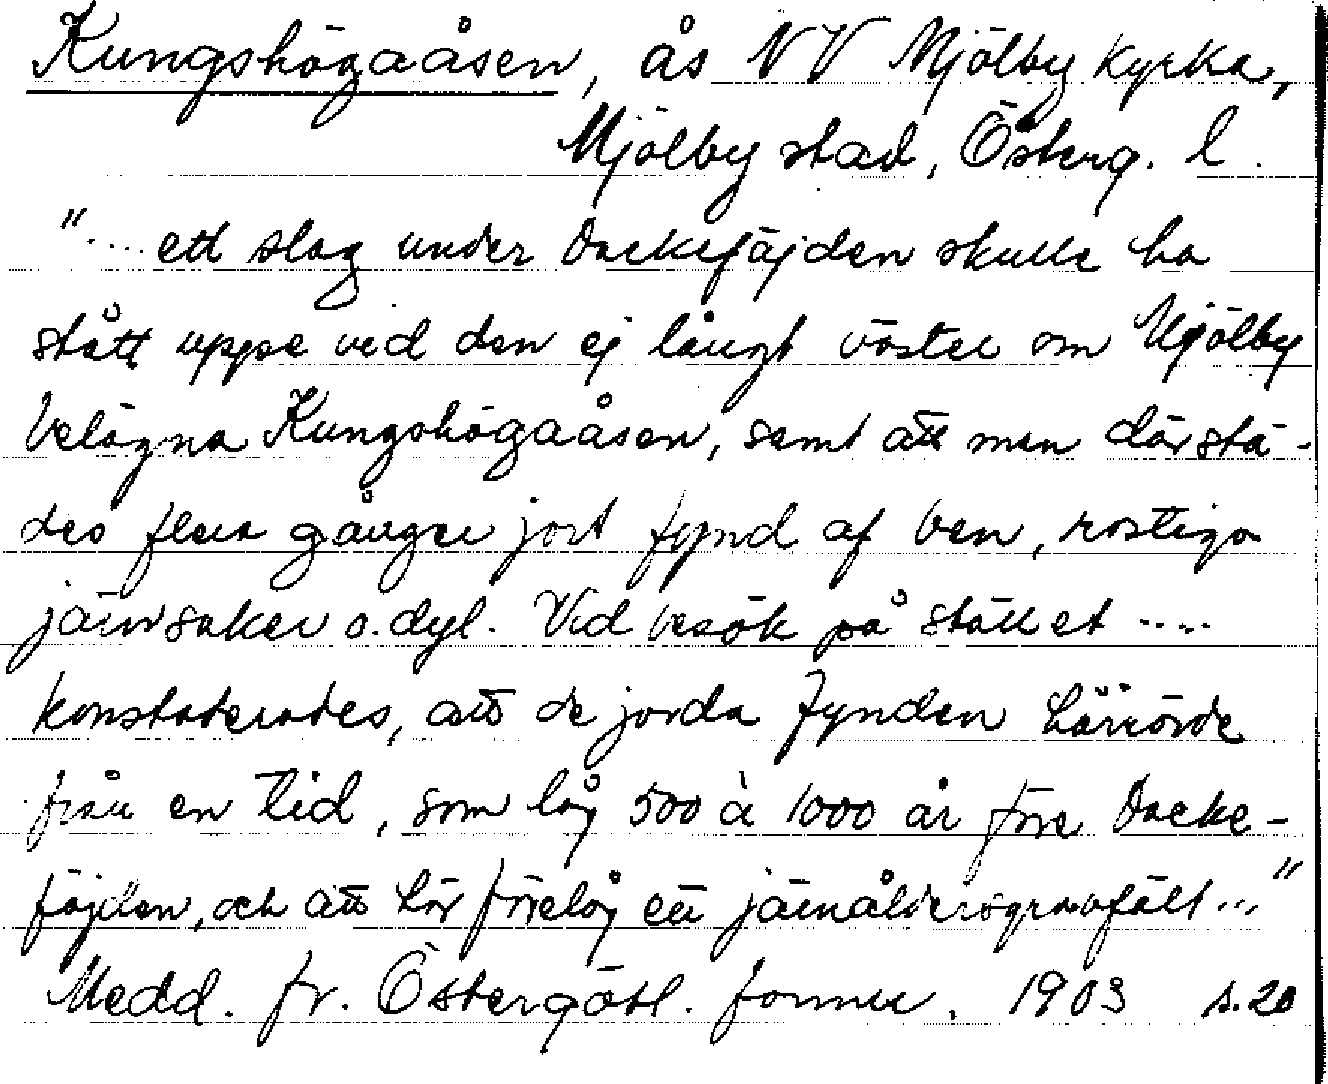 Kungshögaåsen, ås NV Mjölby kyrka,
Mjölby stad, Österg. l.
".... ett slag under Dackefäjden skulle ha
stått uppe vid den ej långt väster om Mjölby
belägna Kungshögaåsen, samt att man därstä-
des flera gånger jort fynd af ben, rostiga
järnsaker o.dyl. Vid besök på stället ....
konstaterades, att de jorda fynden härrörde
från en tid, som låg 500 à 1000 år före Dacke-
fäjden, och att här förelåg ett järnåldersgravfält..."
Medd. fr. Östergötl. fornm. 1903 s. 20